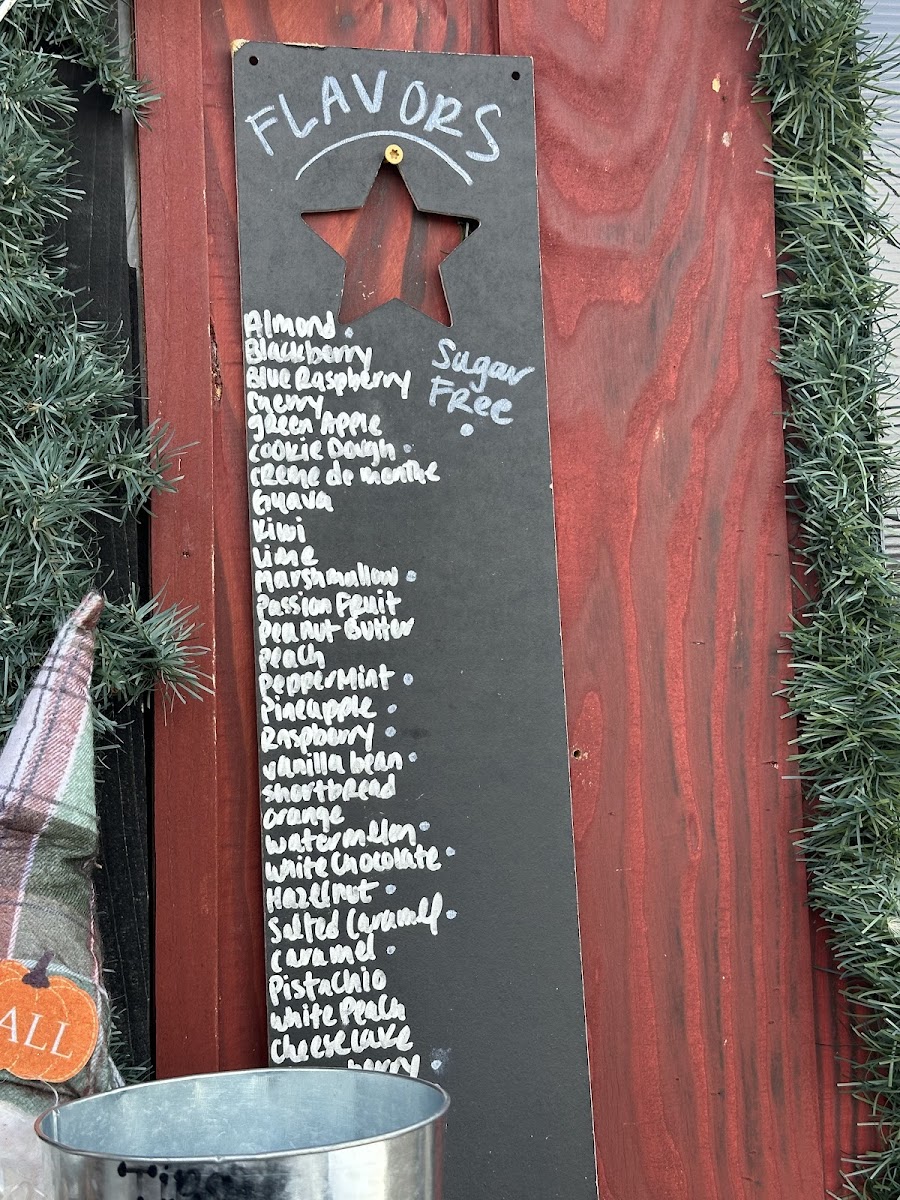 FLAVORS
Almond
Blackberry
Blue Raspberry
Cherry
green Apple
cookie Dough
creme de menthe
Guava
Kiwi
Lime
Marshmallow
Passion Fruit
Peanut Butter
Peach
PepperMint
Pineapple
Raspberry
vanilla bean
shortbread
orange
watermelon
White Chocolate
Hazelnut
Salted Caramel
caramel
Pistachio
White Peach
Cheesecake
Sugar
FRee
ALL
Tips